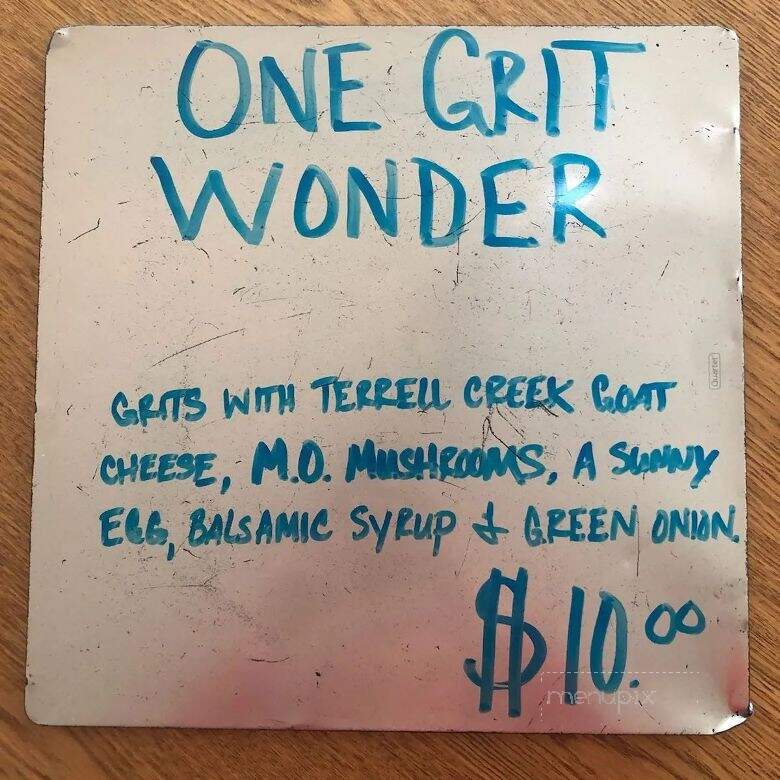 ONE GRIT
WONDER
GRITS WITH TERRELL CREEK GOAT
CHEESE, M.O. MUSHROOMS, A SUNNY
EGG, BALSAMIC SYRUP & GREEN ONION.
$10.00
Quartet
menupix